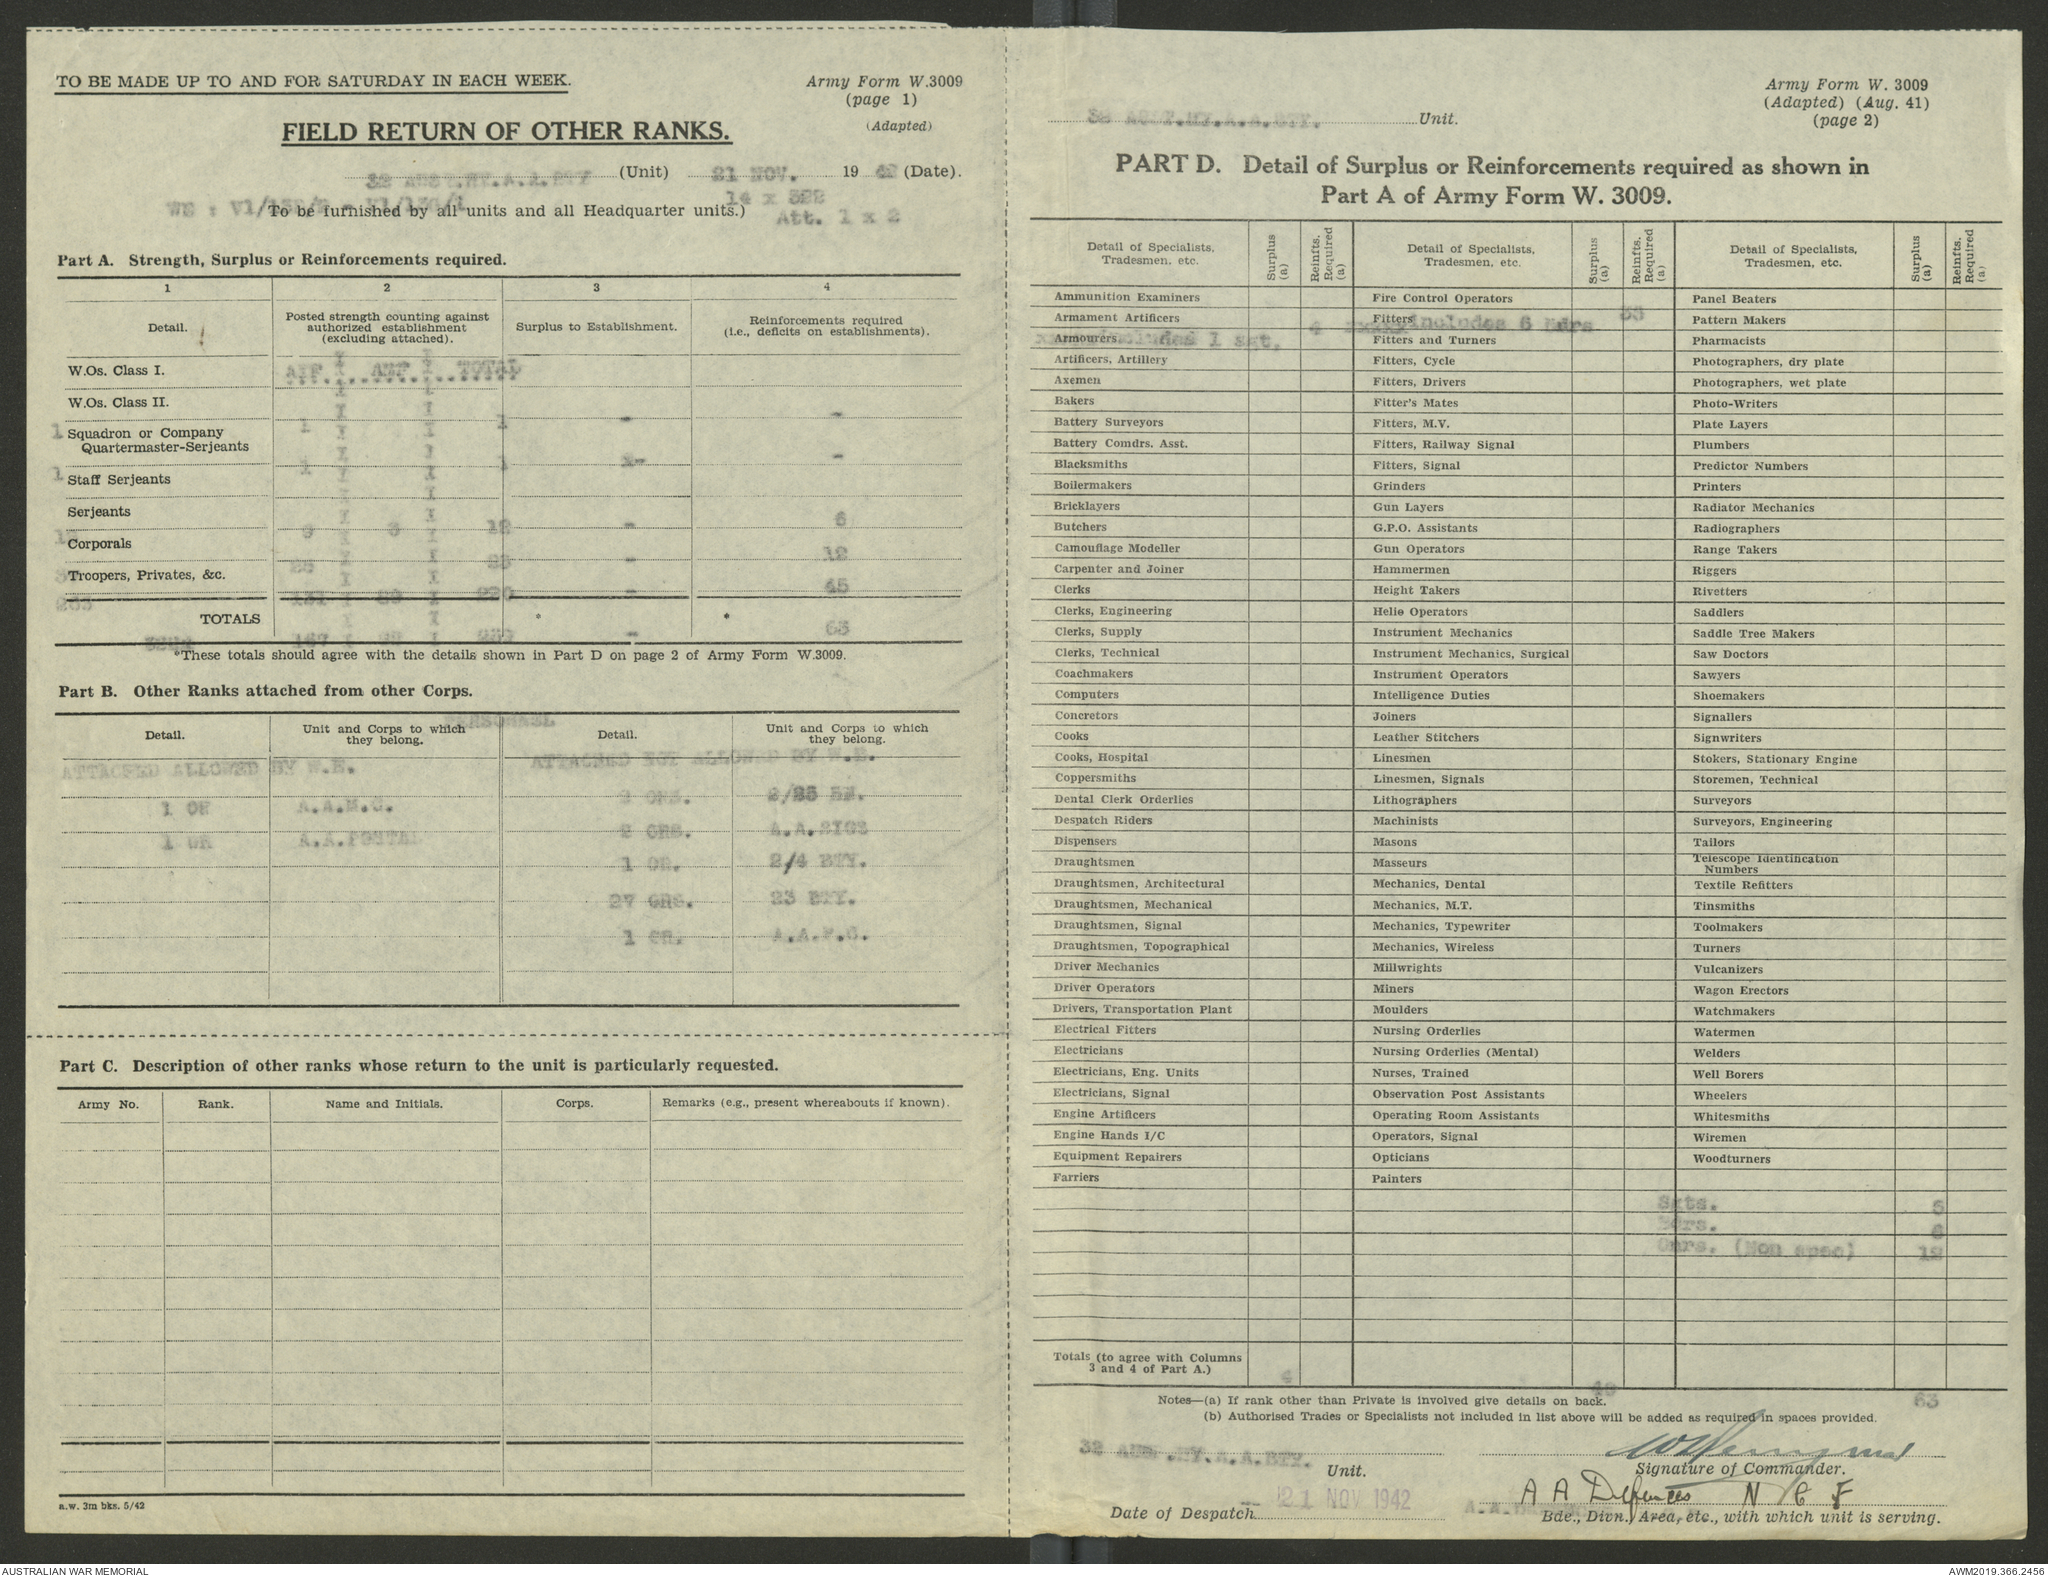 TO BE MADE UP TO AND FOR SATURDAY IN EACH WEEK.
Army Form W.3009
(page 1)
(Adapted)
FIELD RETURN OF OTHER RANKS.
32 AUST.HY.A.A.BTY (Unit) 21 NOV. 1942 (Date).
14 x 322
To be furnished by all units and all Headquarter units.)
Att. 1 x 2
Part A. Strength, Surplus or Reinforcements required.
1 2 3 4
Detail.
Posted strength counting against authorized establishment (excluding attached).
Surplus to Establishment.
Reinforcements required (i.e., deficits on establishments).
AIF AMF TOTAL
W.Os. Class I.
W.Os. Class II.
1 1 - -
1 Squadron or Company Quartermaster-Serjeants
1 1 - -
1 Staff Serjeants
Serjeants
9 3 12 - 6
Corporals
25 25 - 12
Troopers, Privates, &c.
131 89 220 - 45
TOTALS
* *
167 92 259 - 63
*These totals should agree with the details shown in Part D on page 2 of Army Form W.3009.
Part B. Other Ranks attached from other Corps.
PERSONNEL
Detail.
Unit and Corps to which they belong.
Detail.
Unit and Corps to which they belong.
ATTACHED ALLOWED BY W.E.
ATTACHED NOT ALLOWED BY W.E.
2 ORS. 2/25 BN.
1 OR A.A.M.C.
2 ORS. A.A.SIGS
1 OR A.A.POSTAL
1 OR. 2/4 BTY.
27 ORS. 23 BTY.
1 OR. A.A.P.C.
Part C. Description of other ranks whose return to the unit is particularly requested.
Army No. Rank. Name and Initials. Corps. Remarks (e.g., present whereabouts if known).
a.w. 3m bks. 5/42
Army Form W. 3009
(Adapted) (Aug. 41)
(page 2)
32 AUST.HY.A.A.BTY. Unit.
PART D. Detail of Surplus or Reinforcements required as shown in
Part A of Army Form W. 3009.
Detail of Specialists, Tradesmen, etc. Surplus (a) Reinfts. Required (a)
Detail of Specialists, Tradesmen, etc. Surplus (a) Reinfts. Required (a)
Detail of Specialists, Tradesmen, etc. Surplus (a) Reinfts. Required (a)
Ammunition Examiners Fire Control Operators Panel Beaters
Armament Artificers Fitters Pattern Makers
includes 1 sgt. 4 includes 6 Bdrs 33
Armourers Fitters and Turners Pharmacists
Artificers, Artillery Fitters, Cycle Photographers, dry plate
Axemen Fitters, Drivers Photographers, wet plate
Bakers Fitter's Mates Photo-Writers
Battery Surveyors Fitters, M.V. Plate Layers
Battery Comdrs. Asst. Fitters, Railway Signal Plumbers
Blacksmiths Fitters, Signal Predictor Numbers
Boilermakers Grinders Printers
Bricklayers Gun Layers Radiator Mechanics
Butchers G.P.O. Assistants Radiographers
Camouflage Modeller Gun Operators Range Takers
Carpenter and Joiner Hammermen Riggers
Clerks Height Takers Rivetters
Clerks, Engineering Helio Operators Saddlers
Clerks, Supply Instrument Mechanics Saddle Tree Makers
Clerks, Technical Instrument Mechanics, Surgical Saw Doctors
Coachmakers Instrument Operators Sawyers
Computers Intelligence Duties Shoemakers
Concretors Joiners Signallers
Cooks Leather Stitchers Signwriters
Cooks, Hospital Linesmen Stokers, Stationary Engine
Coppersmiths Linesmen, Signals Storemen, Technical
Dental Clerk Orderlies Lithographers Surveyors
Despatch Riders Machinists Surveyors, Engineering
Dispensers Masons Tailors
Draughtsmen Masseurs Telescope Identification Numbers
Draughtsmen, Architectural Mechanics, Dental Textile Refitters
Draughtsmen, Mechanical Mechanics, M.T. Tinsmiths
Draughtsmen, Signal Mechanics, Typewriter Toolmakers
Draughtsmen, Topographical Mechanics, Wireless Turners
Driver Mechanics Millwrights Vulcanizers
Driver Operators Miners Wagon Erectors
Drivers, Transportation Plant Moulders Watchmakers
Electrical Fitters Nursing Orderlies Watermen
Electricians Nursing Orderlies (Mental) Welders
Electricians, Eng. Units Nurses, Trained Well Borers
Electricians, Signal Observation Post Assistants Wheelers
Engine Artificers Operating Room Assistants Whitesmiths
Engine Hands I/C Operators, Signal Wiremen
Equipment Repairers Opticians Woodturners
Farriers Painters
Sgts. 5
Bdrs. 6
Gnrs. (Non spec) 12
Totals (to agree with Columns 3 and 4 of Part A.)
4 40 63
Notes—(a) If rank other than Private is involved give details on back.
(b) Authorised Trades or Specialists not included in list above will be added as required in spaces provided.
32 AUS .HY.A.A.BTY. Unit.
Signature of Commander.
21 NOV 1942
A A Defences N G F
Date of Despatch
Bde., Divn., Area, etc., with which unit is serving.
AUSTRALIAN WAR MEMORIAL
AWM2019.366.2456